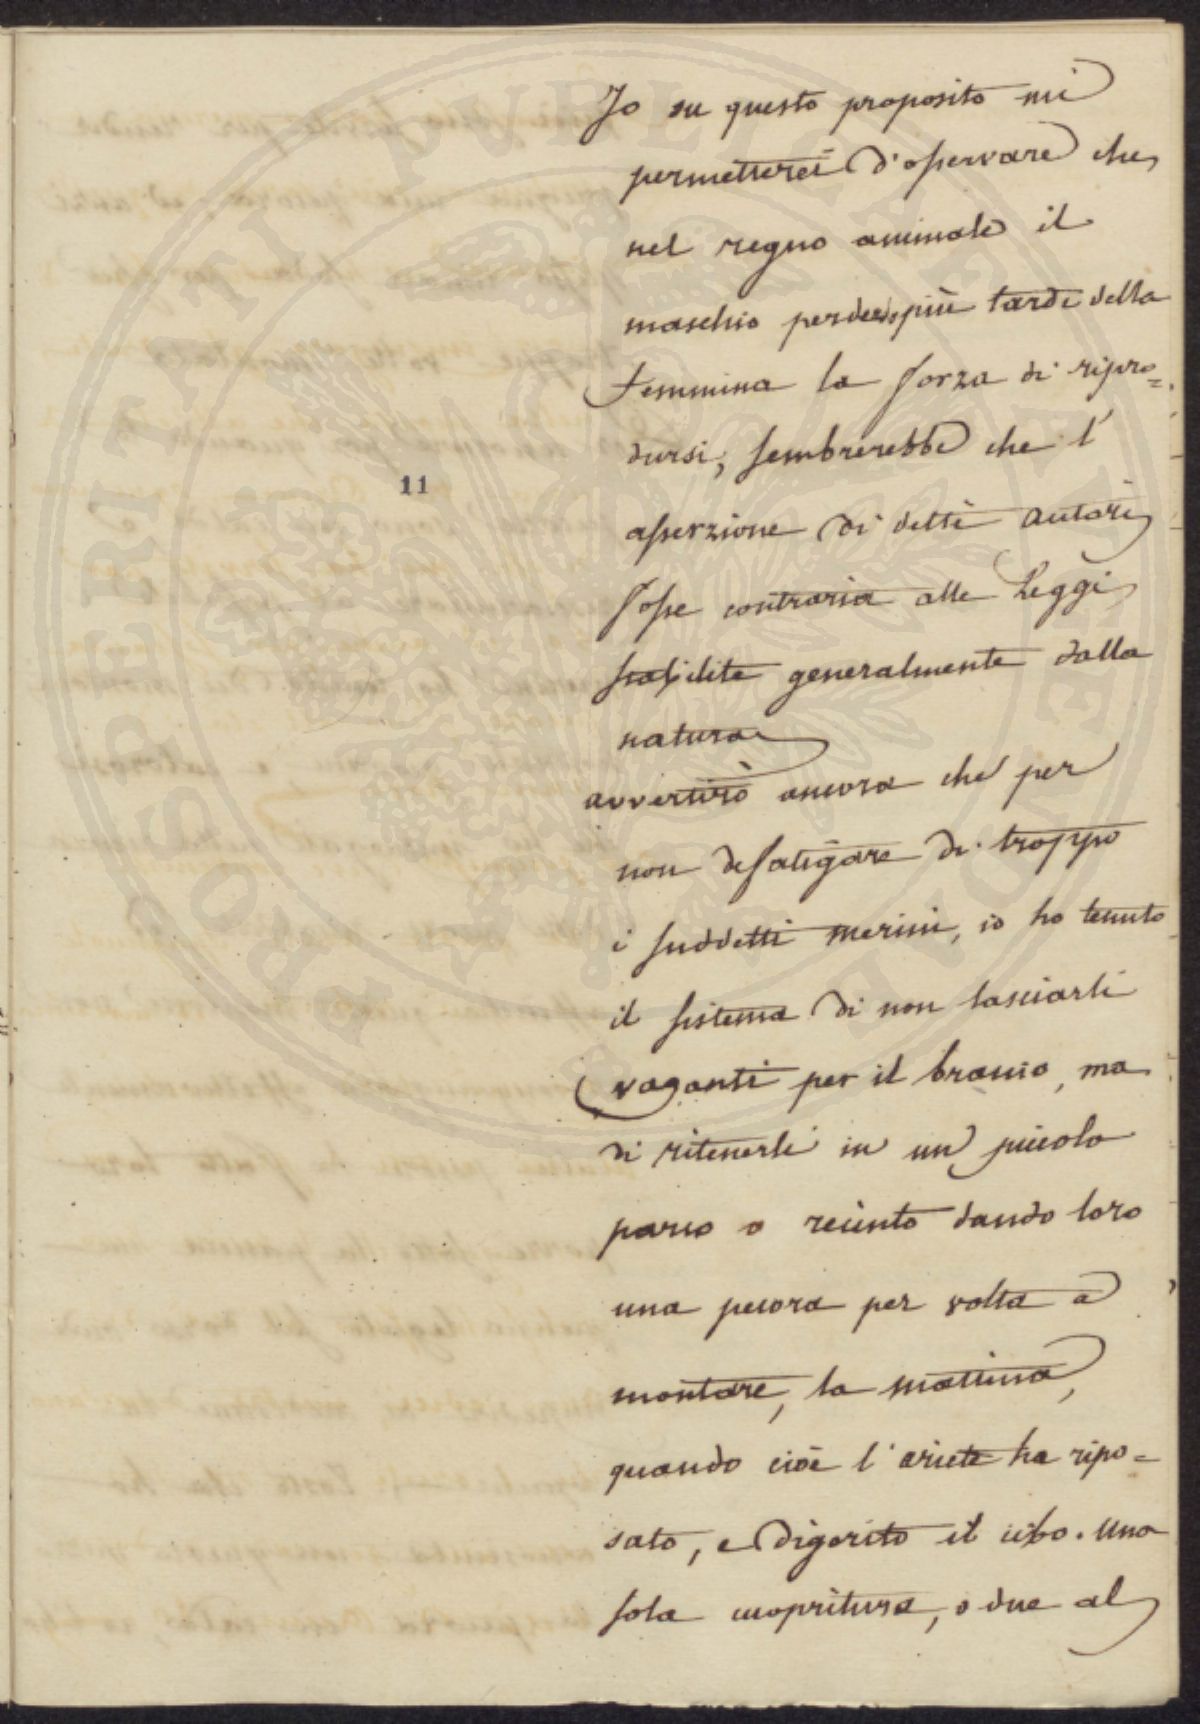 Io su questo proposito mi
permetterei d'osservare che
nel regno animale il
maschio perdendo più tardi della
femmina la forza di ripro=
dursi, sembrerebbe che l'
asserzione di detti autori
fosse contraria alle Leggi
stabilite generalmente dalla
natura
avvertirò ancora che per
non defatigare di troppo
i suddetti merini, io ho tenuto
il sistema di non lasciarli
vaganti per il branco, ma
di ritenerli in un piccolo
parco o recinto dando loro
una pecora per volta a
montare, la mattina,
quando cioè l'ariete ha ripo=
sato, e digerito il cibo. Una
sola cuopritura, o due al
11
PROSPERITATI PUBLICAE AUGENDAE